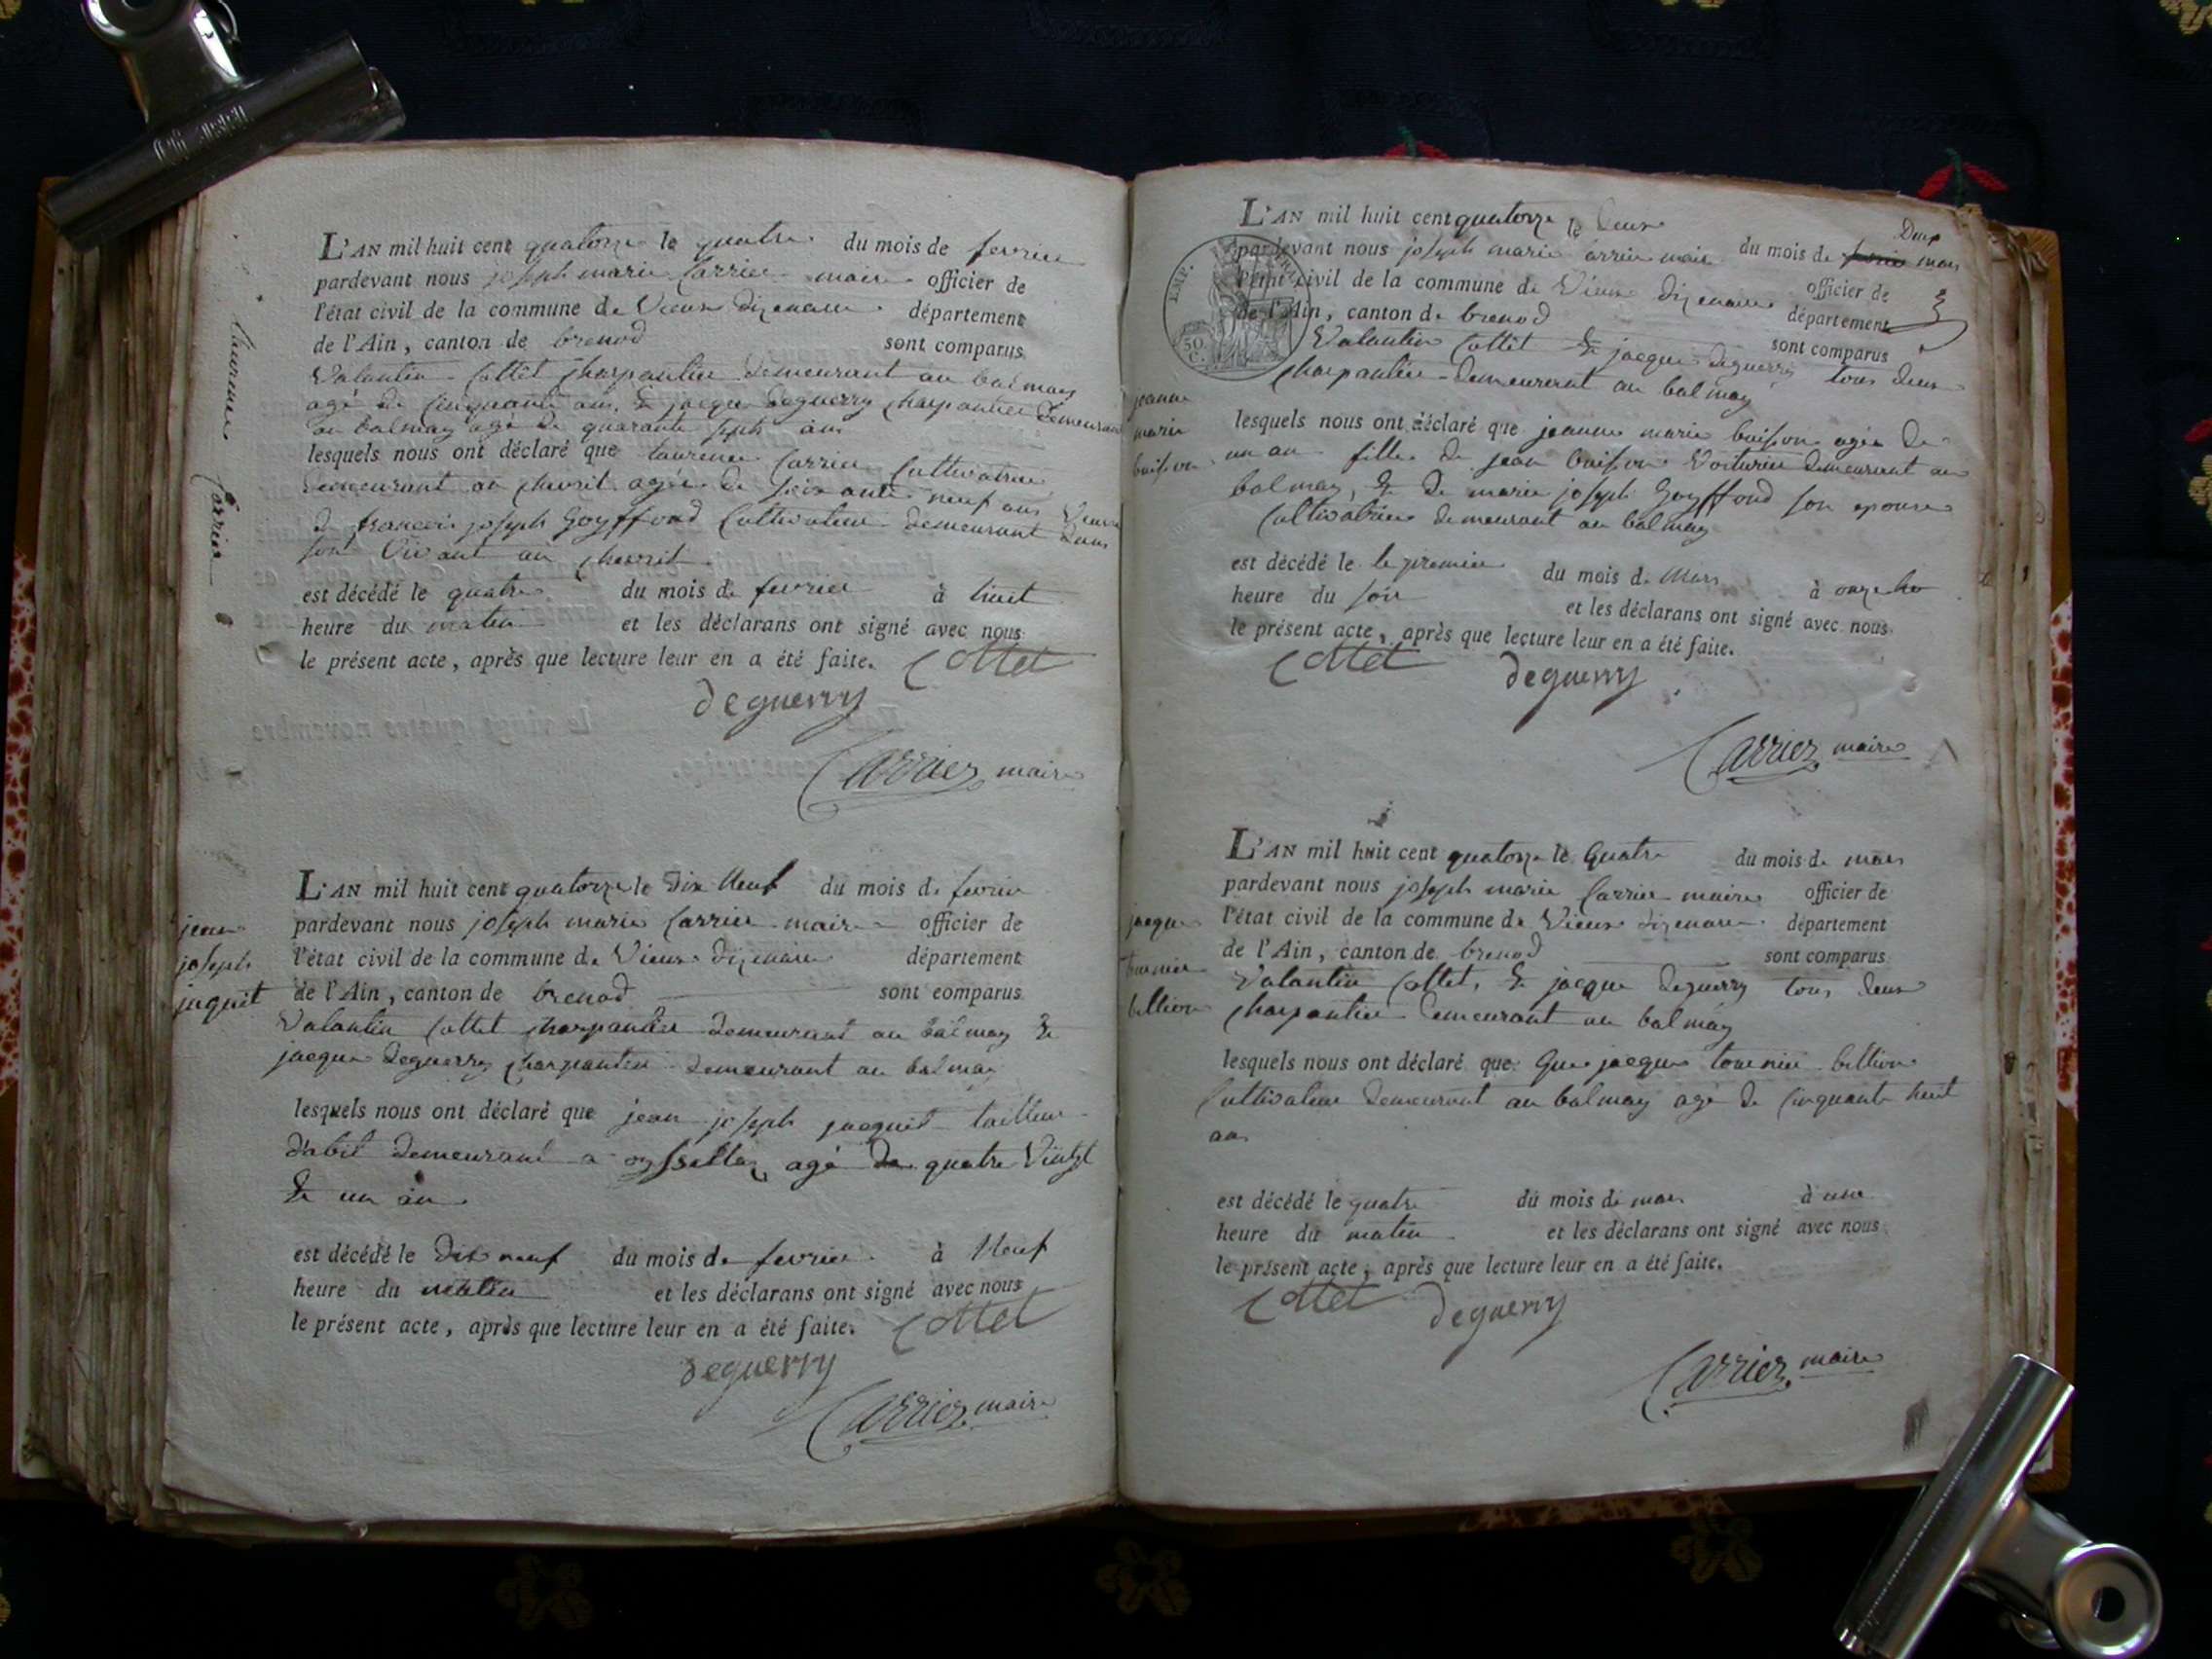 laurence Carrier
L'AN mil huit cent quatorze le quatre du mois de fevrier
pardevant nous joseph marie Carrier maire officier de
l'état civil de la commune de Vieux dizenave département
de l'Ain, canton de brenod sont comparus
Valantin Cottet charpantier demeurant au balmay
agé de cinquante ans, & jacque deguerry charpantier demeurant
au balmay agé de quarante sept ans
lesquels nous ont déclaré que laurence Carrier Cultivatrice
demeurant au chevril agée de soixante neuf ans Veuve
d francois joseph Goyffond Cultivateur demeurant dans
son Vivant au chevril
est décédé le quatre du mois de fevrier à huit
heure du matin et les déclarans ont signé avec nous
le présent acte, après que lecture leur en a été faite. Cottet
deguerry
Carrier maire
jean
joseph
jaquit
L'AN mil huit cent quatorze le dix Neuf du mois de fevrier
pardevant nous joseph marie Carrier maire officier de
l'état civil de la commune de Vieux dizenave département
de l'Ain, canton de brenod sont comparus
Valantin Cottet charpantier demeurant au balmay &
jacque deguerry charpantier demeurant au balmay
lesquels nous ont déclaré que jean joseph jacquit tailleur
d'abit demeurant a oyssellaz agé de quatre Vingt
& un an
est décédé le dix neuf du mois de fevrier à Neuf
heure du matin et les déclarans ont signé avec nous
le présent acte, après que lecture leur en a été faite. Cottet
deguerry
Carrier maire
L'AN mil huit cent quatorze le deux Deux
pardevant nous joseph marie Carrier maire du mois de mars
l'état civil de la commune de Vieux dizenave officier de
de l'Ain, canton de brenod département
50 C.
Valantin Cottet & jacque deguerry tous deux sont comparus
charpantier demeurent au balmay
jeanne
marie
buisson
lesquels nous ont déclaré que jeanne marie buisson agée de
un an fille de jean buisson Voiturier demeurant au
balmay, & de marie joseph Goyffond son epouse
Cultivatrice demeurant au balmay
est décédé le le premier du mois de Mars à onze
heure du soir et les déclarans ont signé avec nous
le présent acte, après que lecture leur en a été faite.
Cottet deguerry
Carrier maire
L'AN mil huit cent quatorze le Quatre du mois de mars
pardevant nous joseph marie Carrier maire officier de
jacque
tournier
billion
l'état civil de la commune de Vieux dizenave département
de l'Ain, canton de brenod sont comparus
Valantin Cottet, & jacque deguerry tous deux
charpantier demeurant au balmay
lesquels nous ont déclaré que Que jacque tournier billion
Cultivateur demeurant au balmay agé de Cinquante huit
ans
est décédé le quatre du mois de mars à une
heure du matin et les déclarans ont signé avec nous
le présent acte, après que lecture leur en a été faite.
Cottet deguerry
Carrier maire